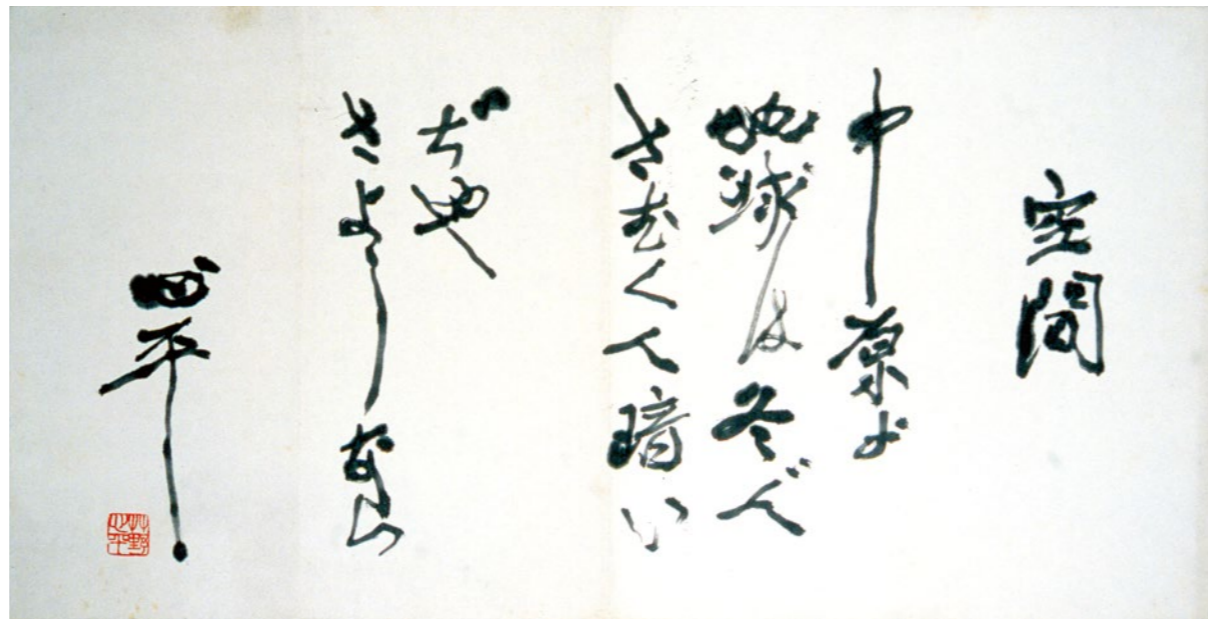 空間
中原よ
地球は冬で
さむくて暗い
ぢや
さようなら
心平
艸野
心平